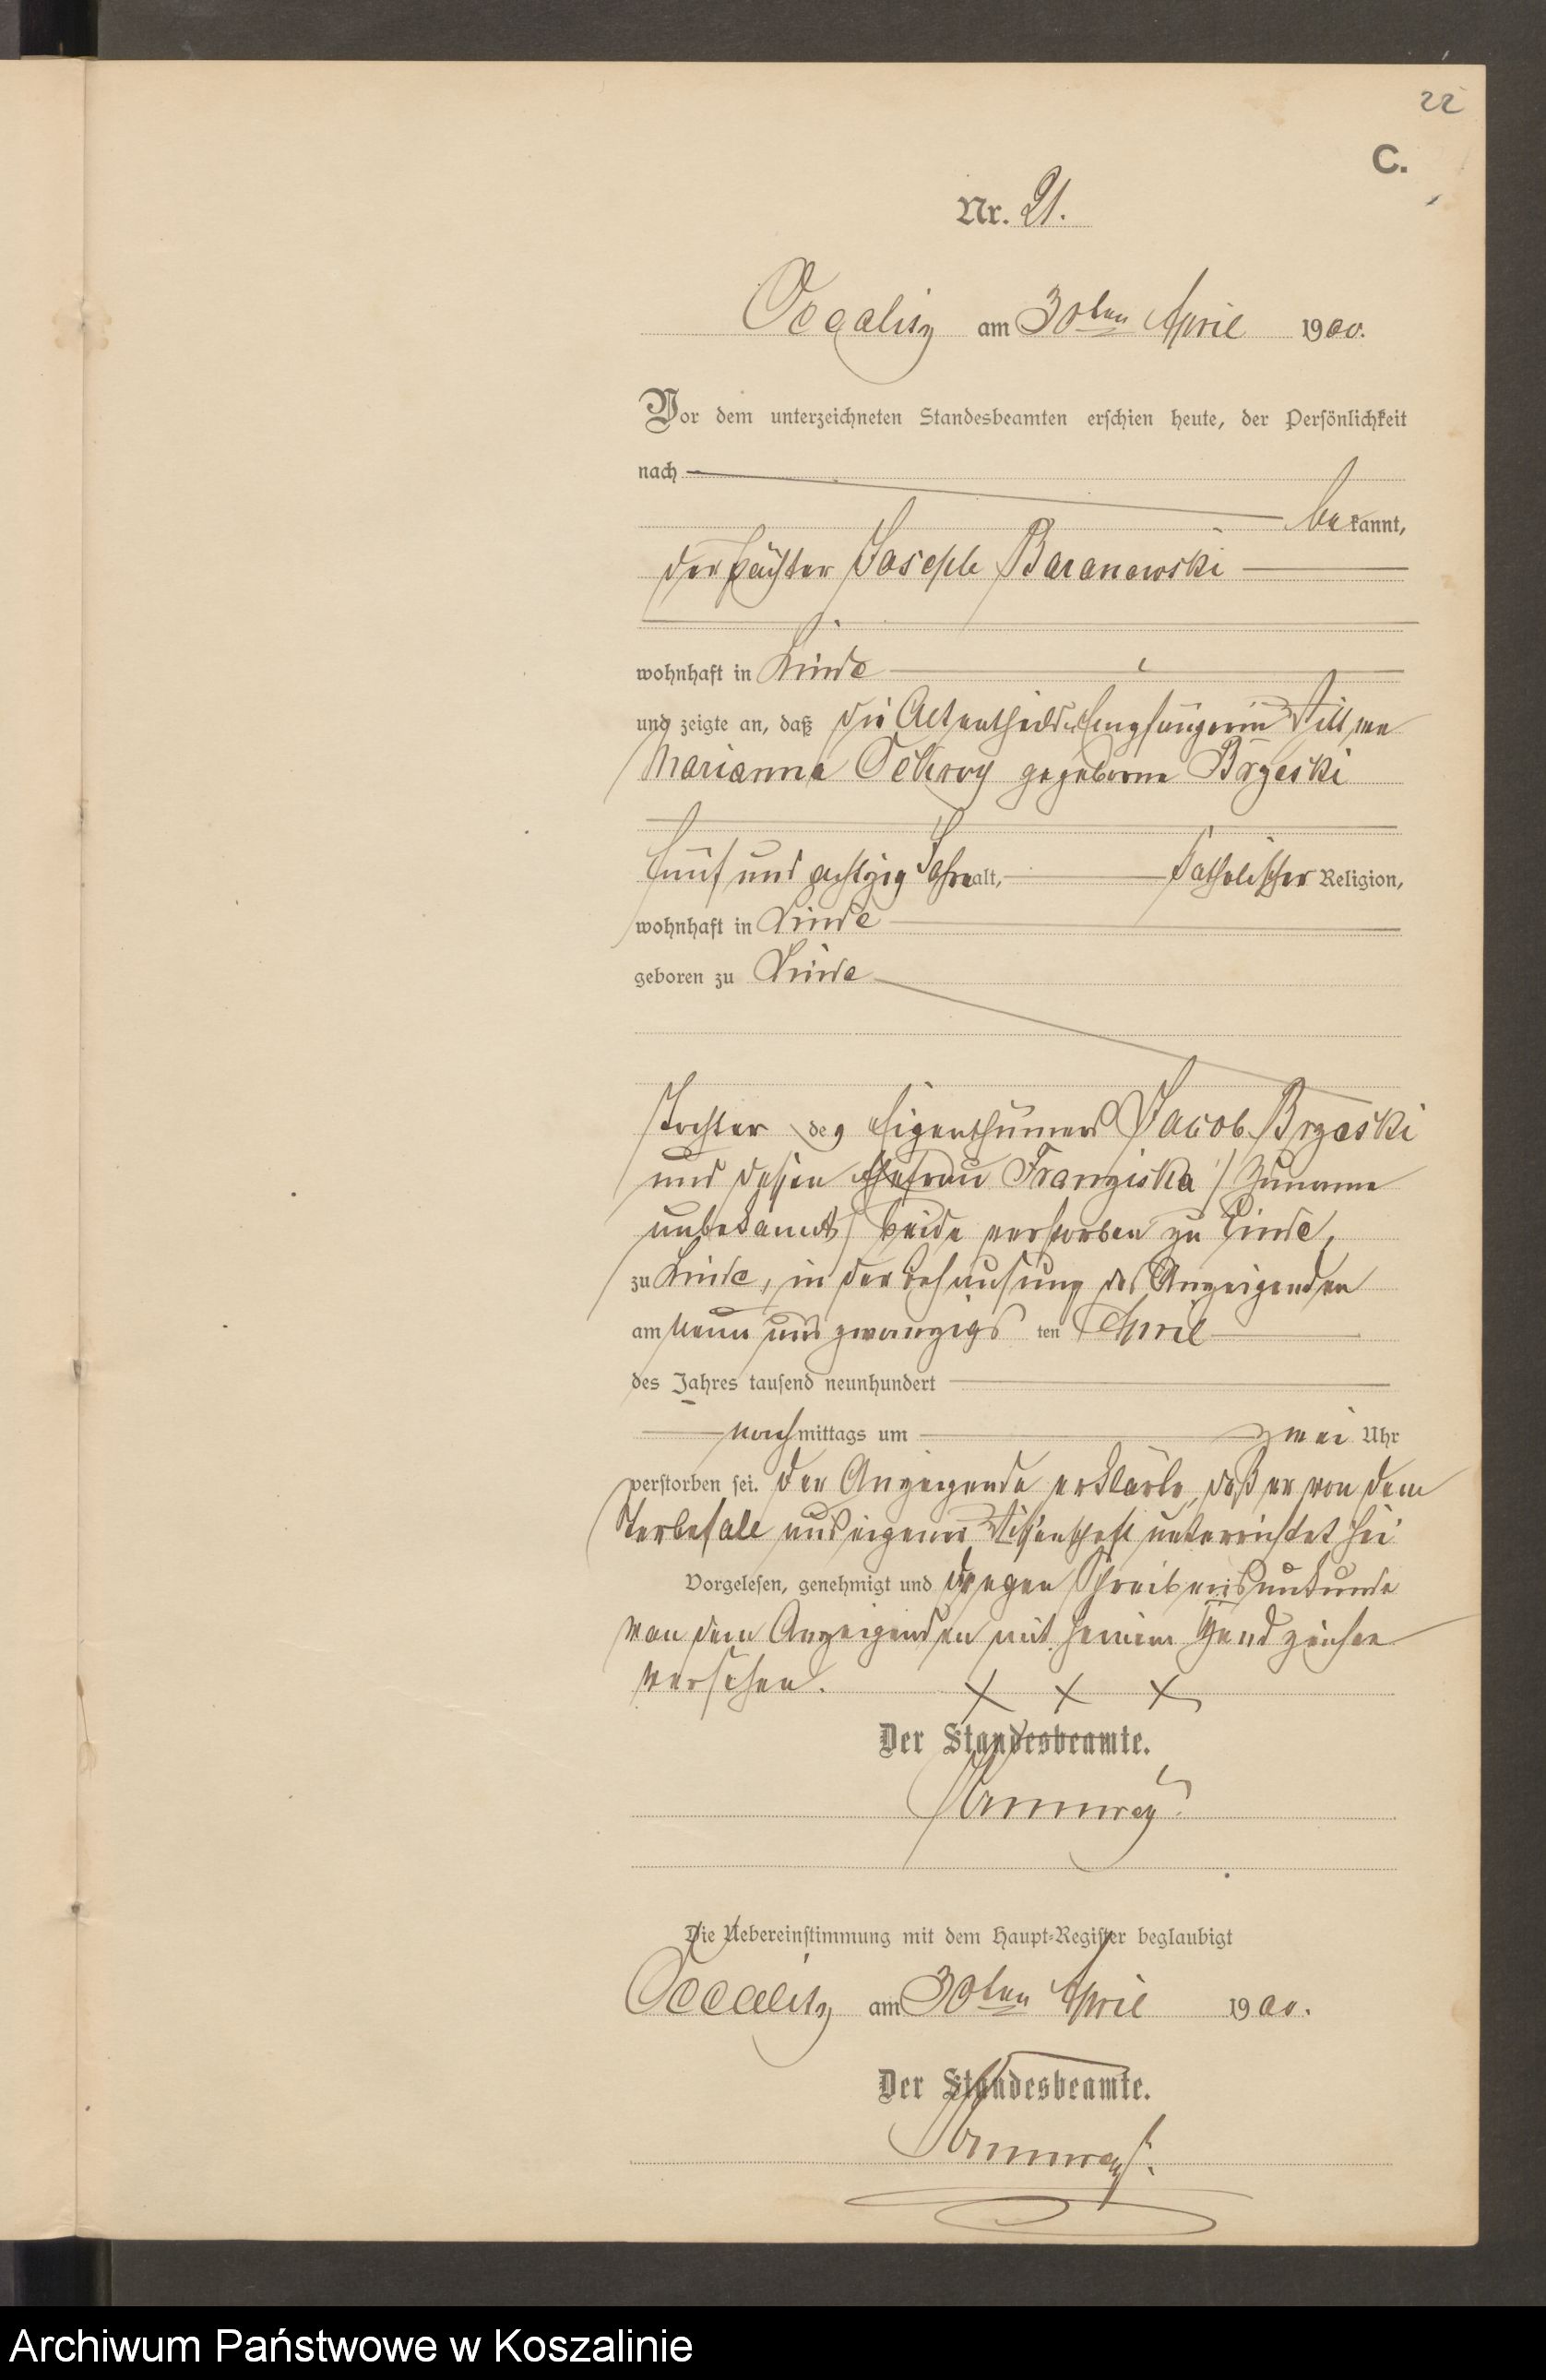 22
C.
Nr. 21.
Occalitz am 30ten April 1900.
Vor dem unterzeichneten Standesbeamten erschien heute, der Persönlichkeit
nach
bekannt,
der Pächter Joseph Baranowski
wohnhaft in Linde
und zeigte an, daß die Altentheilsempfängerin Wittwe
Marianna geborne Brzeski
fünf und achtzig Jahre alt, katholischer Religion,
wohnhaft in Linde
geboren zu Linde
Tochter des Eigenthümers Jacob Brzeski
und dessen Ehefrau Franziska (Zuname
unbekannt) beide verstorben zu Linde,
zu Linde, in der Behausung des Anzeigenden
am neun und zwanzigs ten April
des Jahres tausend neunhundert
nachmittags um zwei Uhr
verstorben sei. Der Anzeigende erklärte, daß er von dem
Sterbefalle aus eigener Wissenschaft unterrichtet sei
Vorgelesen, genehmigt und wegen Schreibensunkunde
von dem Anzeigenden mit seinem Handzeichen
versehen. X X X
Der Standesbeamte.
Die Uebereinstimmung mit dem Haupt-Register beglaubigt
Occalitz am 30ten April 1900.
Der Standesbeamte.
Archiwum Państwowe w Koszalinie